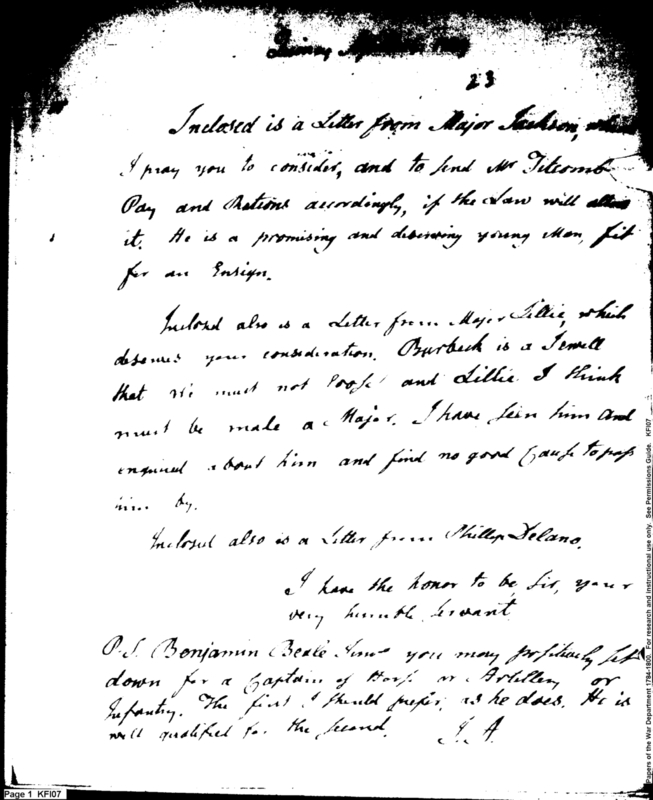 Quincy
23
Inclosed is a Letter from Major Jackson,
I pray you to consider, and to send Mr Titcomb
Pay and Rations accordingly, if the Law will allow
it. He is a promising and deserving young Man, fit
for an Ensign.
Inclosed also is a Letter from Major Lillie, which
deserves your consideration. Burbeck is a Jewell
that We must not loose and Lillie I think
must be made a Major. I have seen him and
enquired about him and find no good Cause to pass
him by.
Inclosed also is a Letter from Phillip Delano.
I have the honor to be, Sir, your
very humble Servant
P.S. Benjamin Beale you may positively set
down for a Captain of Horse or Artillery or
Infantry. The first I should prefer, as he does. He is
well qualified for the second. J. A.
Papers of the War Department 1784-1800. For research and instructional use only. See Permissions Guide. KFI07
Page 1 KFI07